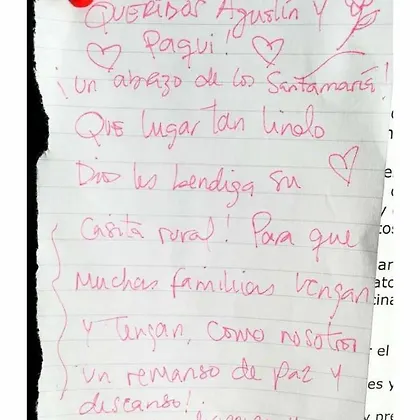 QUERIDOS Agustín y
Paqui!
¡un abrazo de los Santamaría!
Que lugar tan lindo
Dios les bendiga su
Casita rural! Para que
muchas familias vengan
y tengan, como nosotros
un remanso de paz y
descanso!.